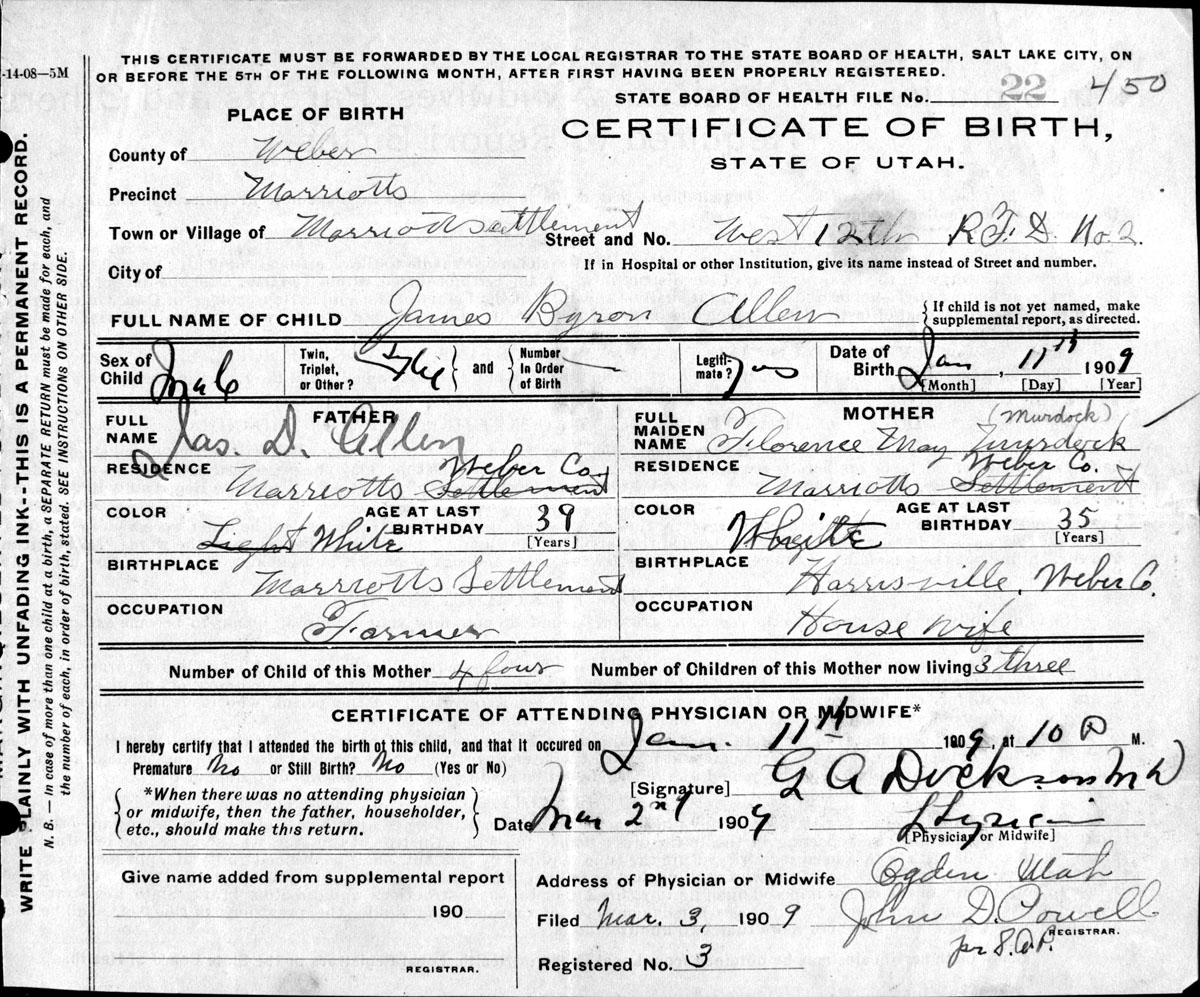 -14-08—5M
THIS CERTIFICATE MUST BE FORWARDED BY THE LOCAL REGISTRAR TO THE STATE BOARD OF HEALTH, SALT LAKE CITY, ON
OR BEFORE THE 5TH OF THE FOLLOWING MONTH, AFTER FIRST HAVING BEEN PROPERLY REGISTERED.
STATE BOARD OF HEALTH FILE No. 22 450
PLACE OF BIRTH
CERTIFICATE OF BIRTH,
STATE OF UTAH.
County of Weber
Precinct Marriotts
Town or Village of Marriotts settlement Street and No. West 12th R.F.D. No. 2.
City of
If in Hospital or other Institution, give its name instead of Street and number.
FULL NAME OF CHILD James Byron Allen
{If child is not yet named, make
supplemental report, as directed.
Sex of Child Male
Twin, Triplet, or Other? } and { Number In Order of Birth —
Legiti-mate? yes
Date of Birth Jan, 11th 1909
[Month] [Day] [Year]
FATHER
FULL NAME Jas. D. Allen
RESIDENCE Marriotts Settlement Weber Co.
COLOR Light White
AGE AT LAST BIRTHDAY 39 [Years]
BIRTHPLACE Marriotts Settlement
OCCUPATION Farmer
MOTHER (Murdock)
FULL MAIDEN NAME Florence May Murdock
RESIDENCE Marriotts Settlement Weber Co.
COLOR White
AGE AT LAST BIRTHDAY 35 [Years]
BIRTHPLACE Harrisville, Weber Co.
OCCUPATION House wife
Number of Child of this Mother 4 four Number of Children of this Mother now living 3 three
CERTIFICATE OF ATTENDING PHYSICIAN OR MIDWIFE*
I hereby certify that I attended the birth of this child, and that it occured on Jan. 11th 1909, at 10 P M.
Premature No or Still Birth? No (Yes or No)
[Signature] G A Dickson M D
{*When there was no attending physician
or midwife, then the father, householder,
etc., should make this return.}
Date Mar 2nd 1909
Physician
[Physician or Midwife]
Give name added from supplemental report
190
REGISTRAR.
Address of Physician or Midwife Ogden Utah
Filed Mar. 3, 1909 John D. Powell
REGISTRAR.
pr S.A.P.
Registered No. 3
WRITE PLAINLY WITH UNFADING INK--THIS IS A PERMANENT RECORD.
N. B. — In case of more than one child at a birth, a SEPARATE RETURN must be made for each, and
the number of each, in order of birth, stated. SEE INSTRUCTIONS ON OTHER SIDE.